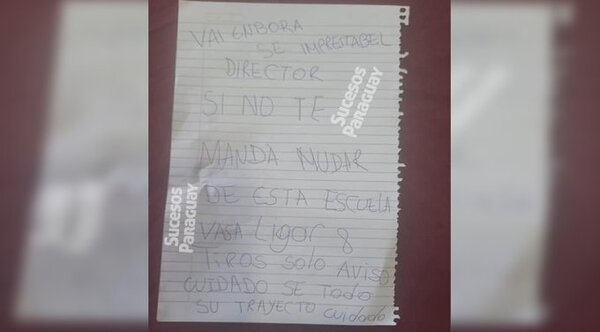 VAI ENBORA
SE IMPRESTABEL
DIRECTOR
SI NO TE
MANDA MUDAR
DE ESTA ESCUELA
VASA Ligor 8
TIROS SOLO AVISO
CUIDADO SE TODO
SU TRAYECTO cuidado
Sucesos
Paraguay
Sucesos
Paraguay